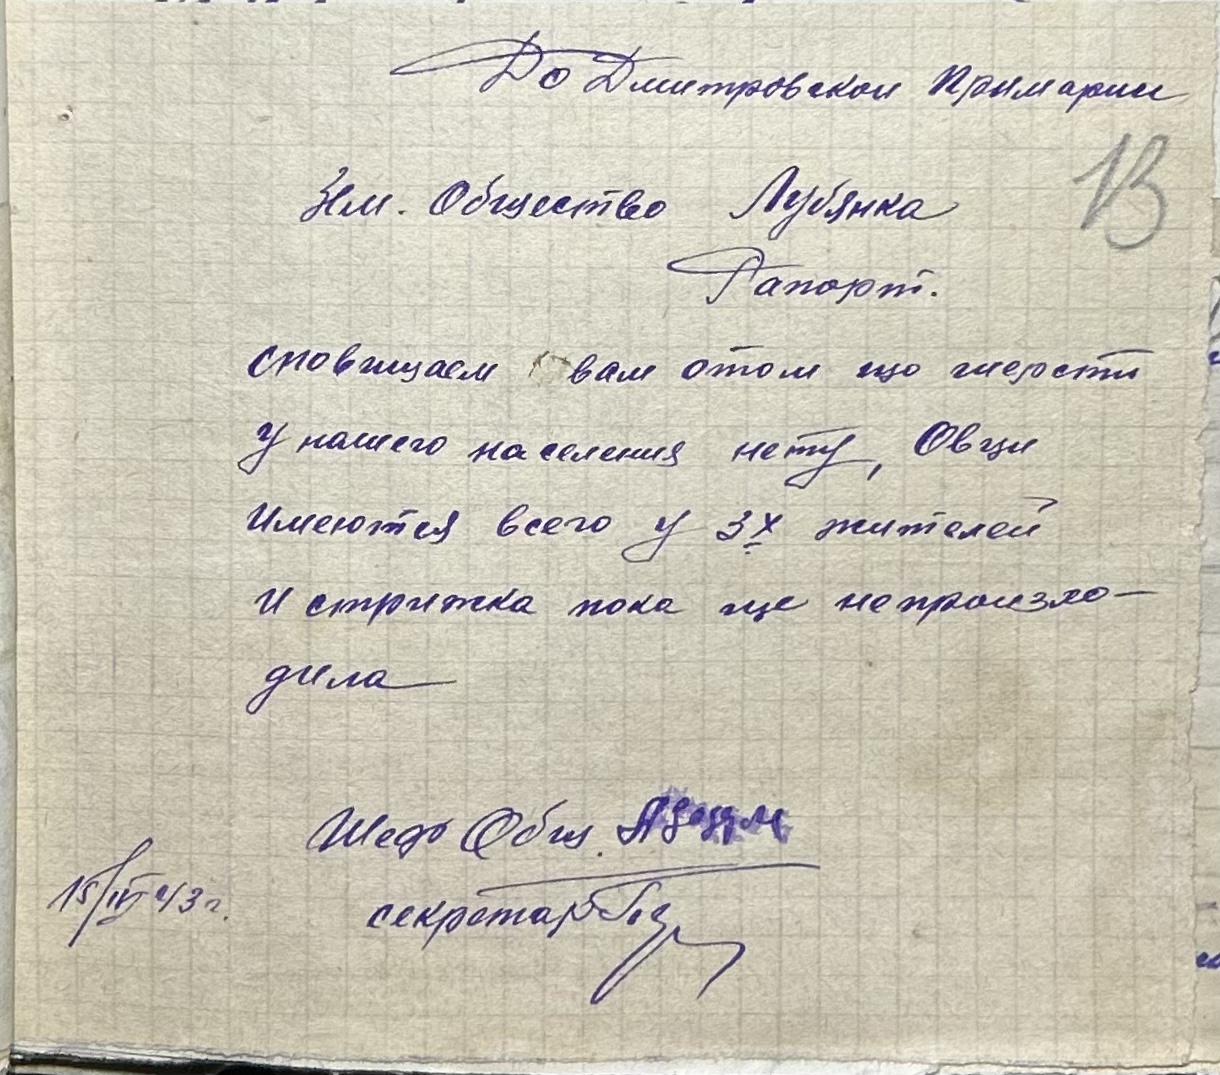 До Дмитровской Примарии
13
Зем. Общество Лубянка
Рапорт.
сповищаем вам отом що шерсти
у нашего населения нету, Овци
имеются всего у 3х жителей
и стрижка пока ще непроизхо-
дила
Шеф Общ.
15/IV 43 г.
секретарь